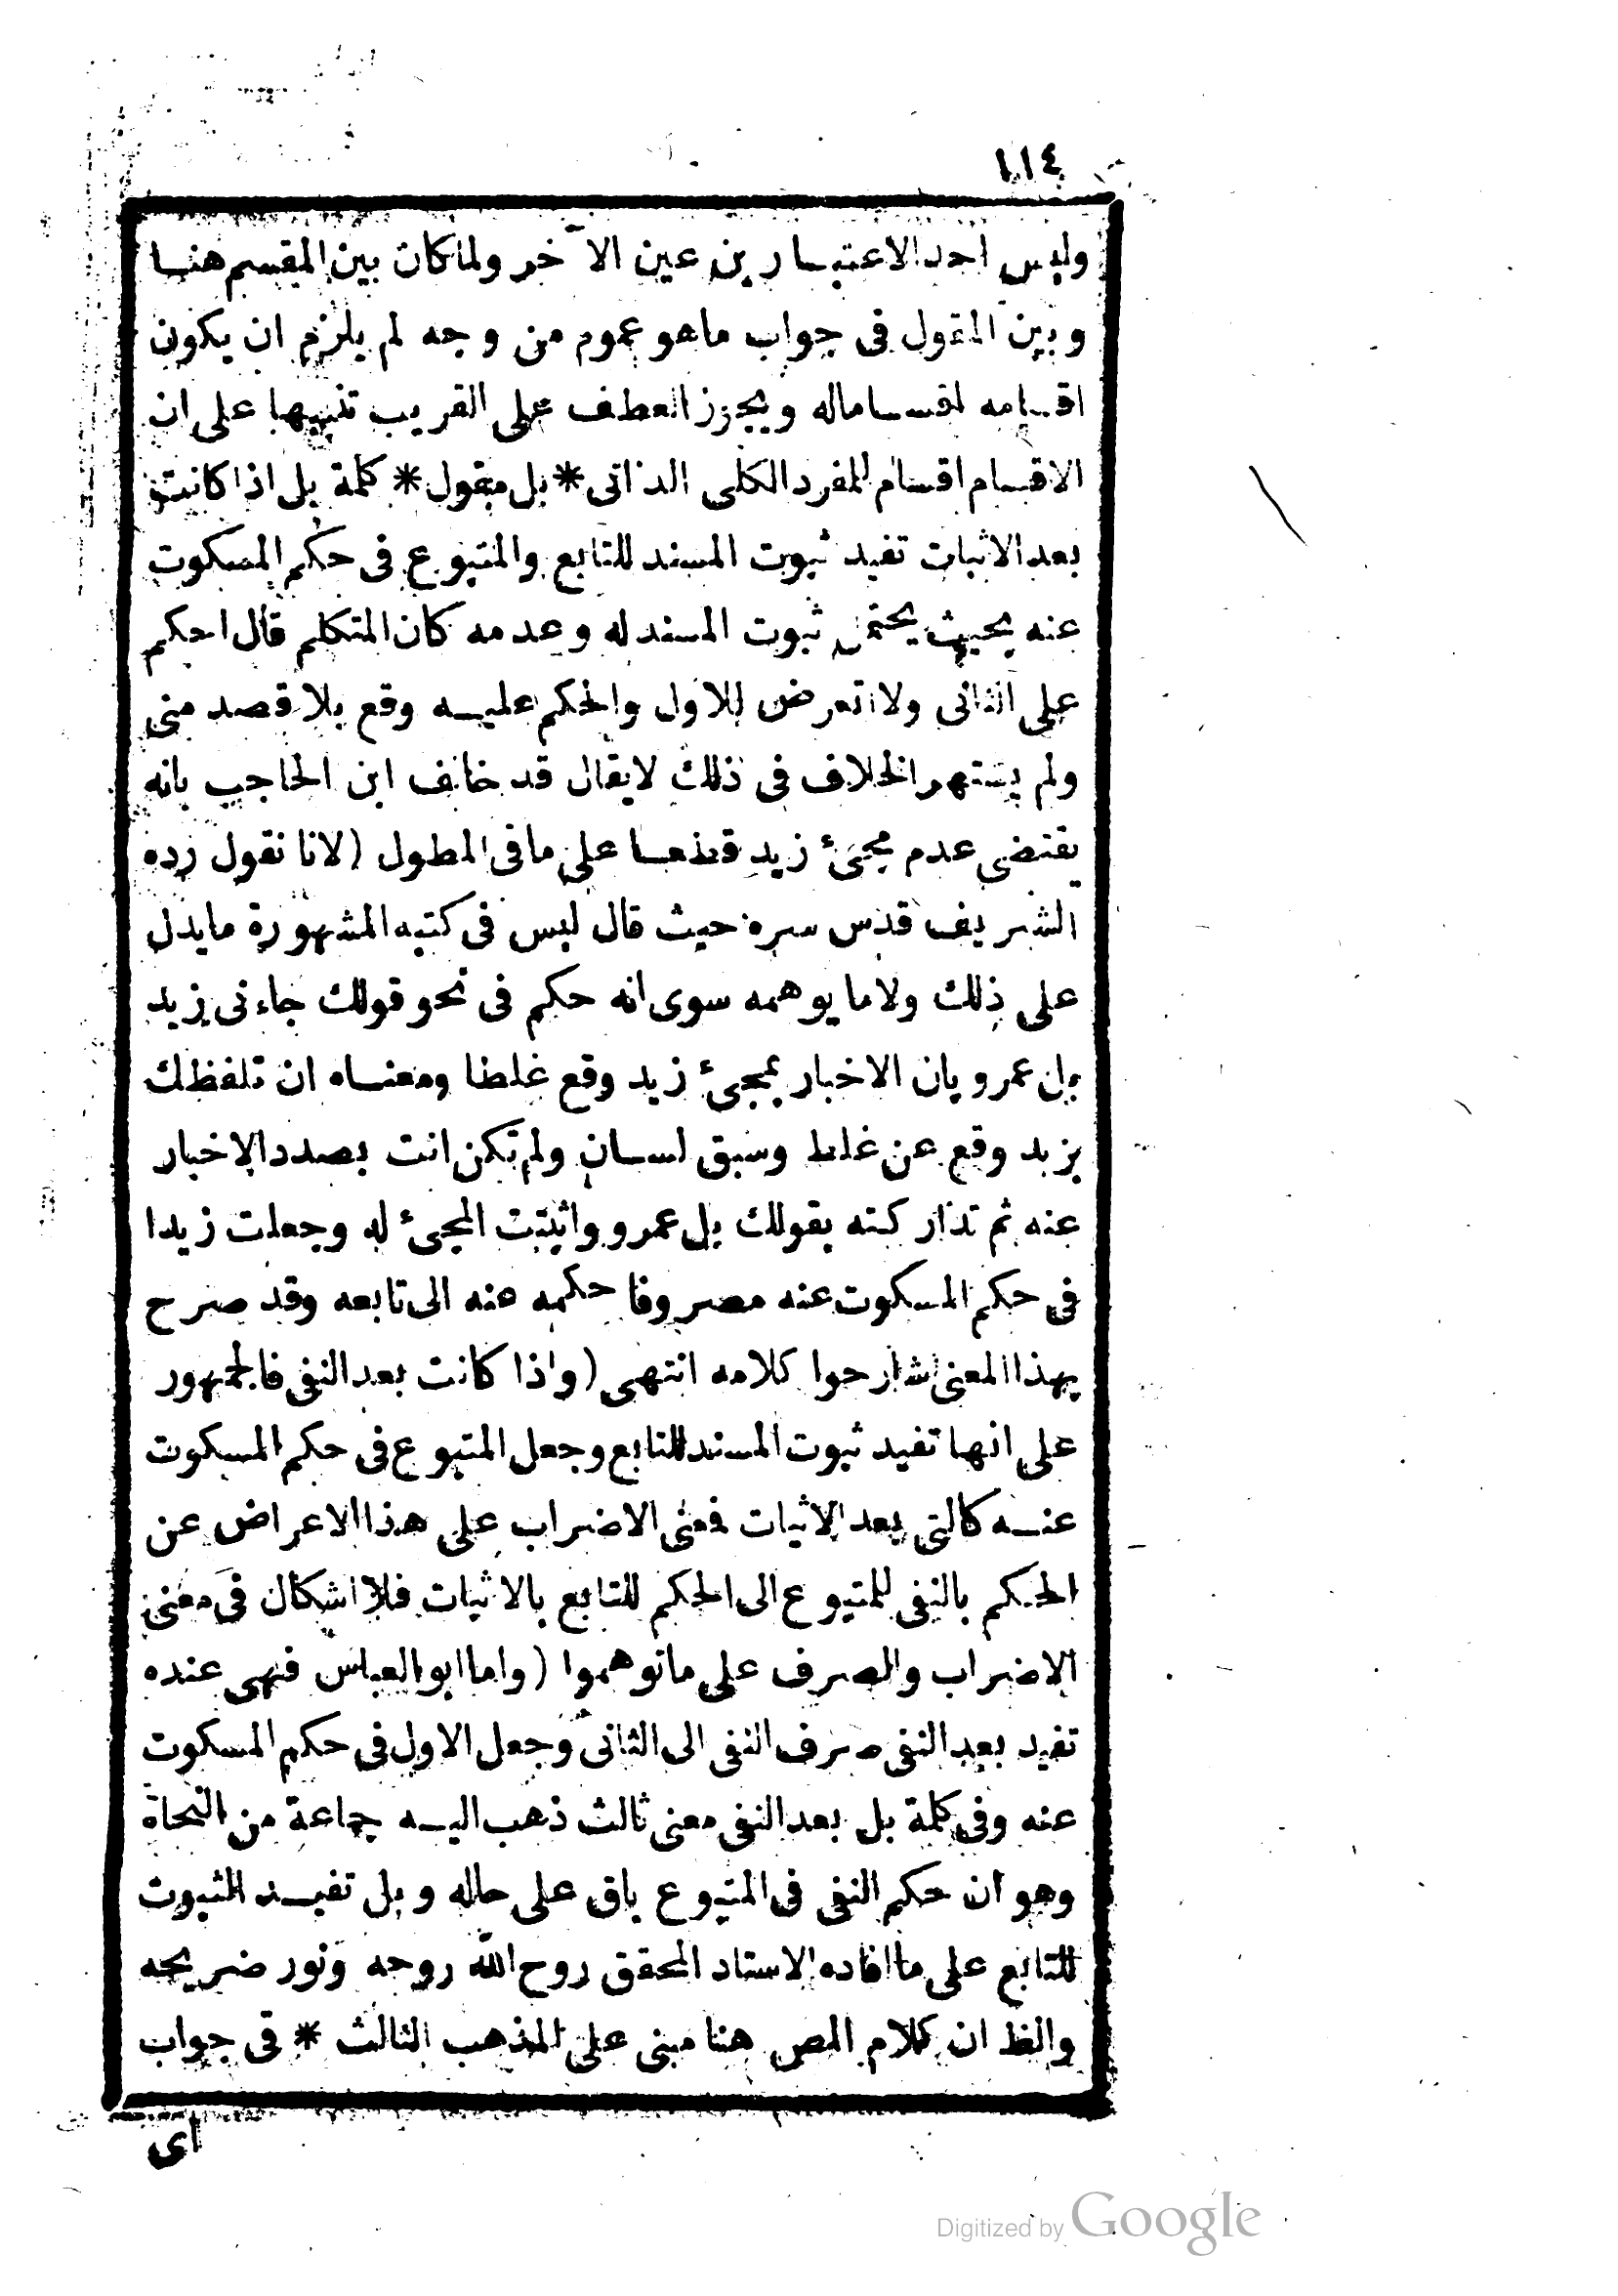 ١١٤
وليس احد الاعتبارين عين الآخر ولما كان بين المقسم هنا
وبين المقول فى جواب ما هو عموم من وجه لم يلزم ان يكون
اقسامه اقساما له ويجوز العطف على القريب تنبيها على ان
الاقسام اقسام للمفرد الكلى الذاتى * بل مقول * كلمة بل اذا كانت
بعد الاثبات تفيد ثبوت المسند للتابع والمتبوع فى حكم المسكوت
عنه بحيث يحتمل ثبوت المسند له وعدمه كان المتكلم قال احكم
على الثانى ولا اتعرض للاول والحكم عليه وقع بلا قصد منى
ولم يشتهر الخلاف فى ذلك لايقال قد خالف ابن الحاجب بانه
يقتضى عدم مجئ زيد قطعا على ما فى المطول (لانا نقول رده
الشريف قدس سره حيث قال ليس فى كتبه المشهورة ما يدل
على ذلك ولا ما يوهمه سوى انه حكم فى نحو قولك جاءنى زيد
بل عمرو بان الاخبار بمجئ زيد وقع غلطا ومعناه ان تلفظك
بزيد وقع عن غلط وسبق لسان ولم تكن انت بصدد الاخبار
عنه ثم تداركته بقولك بل عمرو واثبتت المجئ له وجعلت زيدا
فى حكم المسكوت عنه مصروفا حكمه عنه الى تابعه وقد صرح
بهذا المعنى شارحوا كلامه انتهى (واذا كانت بعد النفى فالجمهور
على انها تفيد ثبوت المسند للتابع وجعل المتبوع فى حكم المسكوت
عنه كالتى بعد الاثبات فمعنى الاضراب على هذا الاعراض عن
الحكم بالنفى للمتبوع الى الحكم للتابع بالاثبات فلا اشكال فى معنى
الاضراب والصرف على ما توهموا (واما ابو العباس فهى عنده
تفيد بعد النفى صرف النفى الى الثانى وجعل الاول فى حكم المسكوت
عنه وفى كلمة بل بعد النفى معنى ثالث ذهب اليه جماعة من النحاة
وهو ان حكم النفى فى المتبوع باق على حاله وبل تفيد الثبوت
للتابع على ما افاده الاستاد المحقق روح الله روحه ونور ضريحه
والظ ان كلام المص هنا مبنى على المذهب الثالث * فى جواب
اى
Digitized by Google